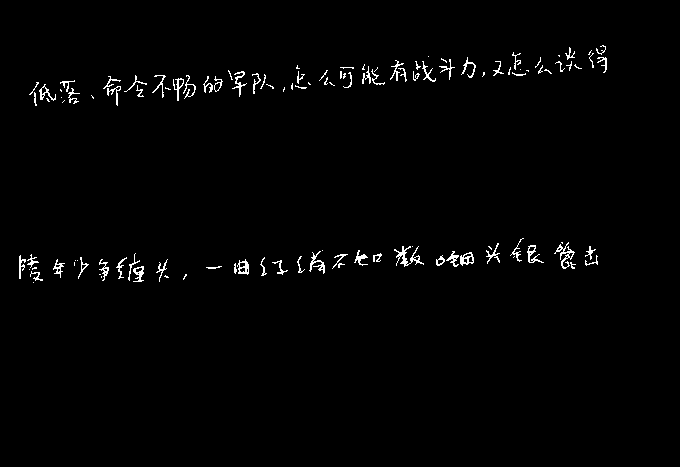 低落、命令不畅的军队,怎么可能有战斗力,又怎么谈得
陵年少争缠头,一曲红绡不知数钿头银篦击